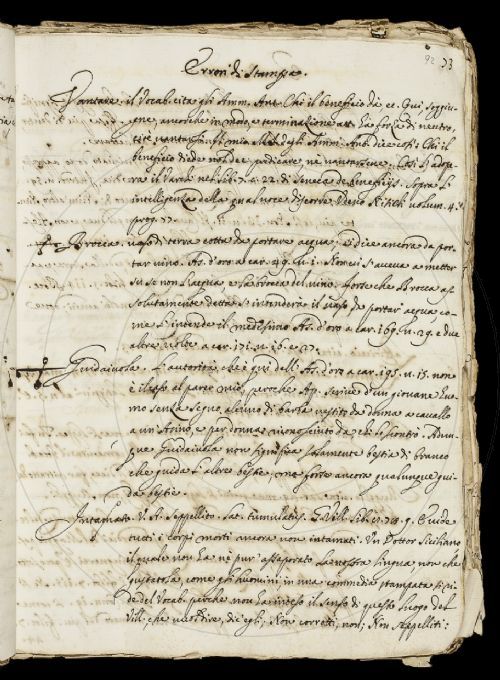 92 73
Errori di Stampa.
Vantare. il Vocab. cita gli Amm. Ant. Chi il beneficio dà et. Qui soggiu-
gne, ancorche in modo, e terminazione att. ha forza di neutro,
degli Amm. Ant. dice così: Chi il
beneficio diede non dee predicare nè vantarsene. Così l'adop-
ra il Varchi nel lib. 2. c. 22. di Seneca de beneficijs. Sopra l'
intelligenza della qual voce discorre Udeno Nisieli volum. 4.
prog. 77.
Brocca. vaso di terra cotta da portare acqua, e dice ancora da por-
tar vino. As. d'oro a car. 49. Non vi aveva a metter
se non l'acqua e la brocca del vino. forte che Brocca as-
solutamente detta s'intenderà il vaso da portar acqua co-
me s'intende il medesimo As. d'oro a car. 169. 29. e due
altre volte a car. 171. 16. e 27.
Guidaiuola. L'autorità, che è qui dell'As. d'oro a car. 195. 15. non
è il caso al parer mio, perche Ap. scrive d'un giovane huo-
mo senza segno alcuno di barba vestito da donna a cavallo
a un Asino, e per donna riconosciuto da chi lo scontrò. Adun-
que Guidaiuola non significa solamente bestia di branco
che guida l'altre bestie, ma forte ancora qualunque gui-
da bestie.
Intamato. V. A. Seppellito. Lat. tumulatus. G. Vill. lib. 12. 78. 9. E vide
tutti i corpi morti ancora non intamati. Un Dottor Siciliano
il quale non ha nè pur assaporato la nostra lingua non che
gustatola, come gli huomini, in una commedia stampata si ri-
de del Vocab. perche non ha inteso il senso di questo luogo del
Vill. che vuol dire, dic'egli; Non corrotti, non; Non seppelliti: